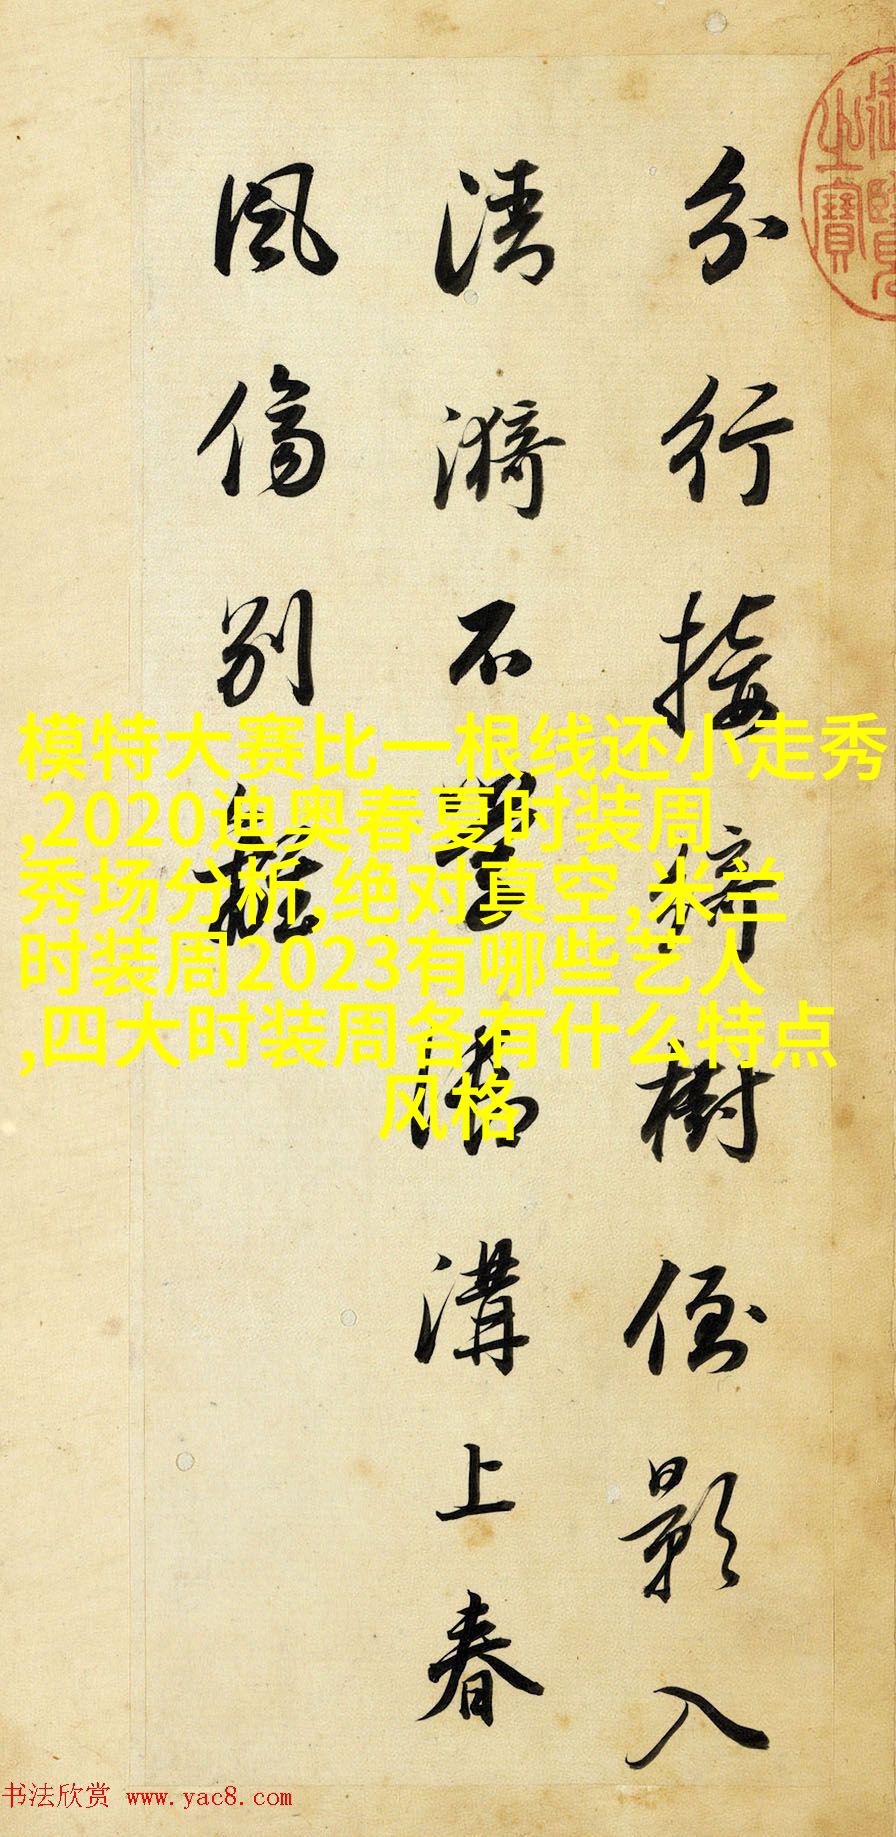 分行接綺樹倒影入
清漪不學御溝上春
風傷別離
之寶
模特大赛比一根线还小走秀
,2020迪奥春夏时装周
秀场分析,绝对真空,米兰
时装周2023有哪些艺人
,四大时装周各有什么特点
风格
书法欣赏 www.yac8.com